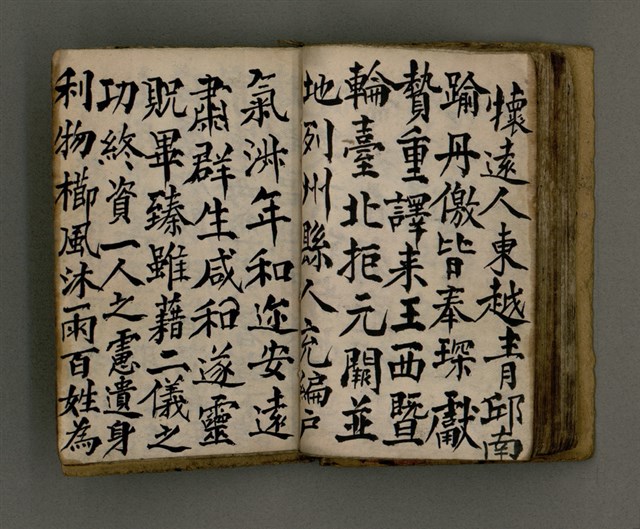 懷遠人東越青邱南
踰丹儌皆奉琛獻
贄重譯来王西暨
輪臺北拒元闕並
地列州縣人充編戶
氣淋年和迩安遠
肅群生咸和遂靈
貺畢臻雖藉二儀之
功終資一人之慮遺身
利物櫛風沐雨百姓為